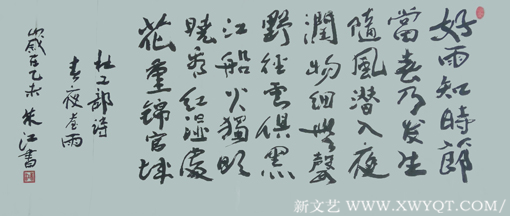 好雨知時節
當春乃發生
隨風潛入夜
潤物細無聲
野徑雲俱黑
江船火獨明
曉看紅濕處
花重錦官城
杜工部詩
春夜喜雨
歲在乙未 朱江書
新文艺 WWW.XWYQT.COM/